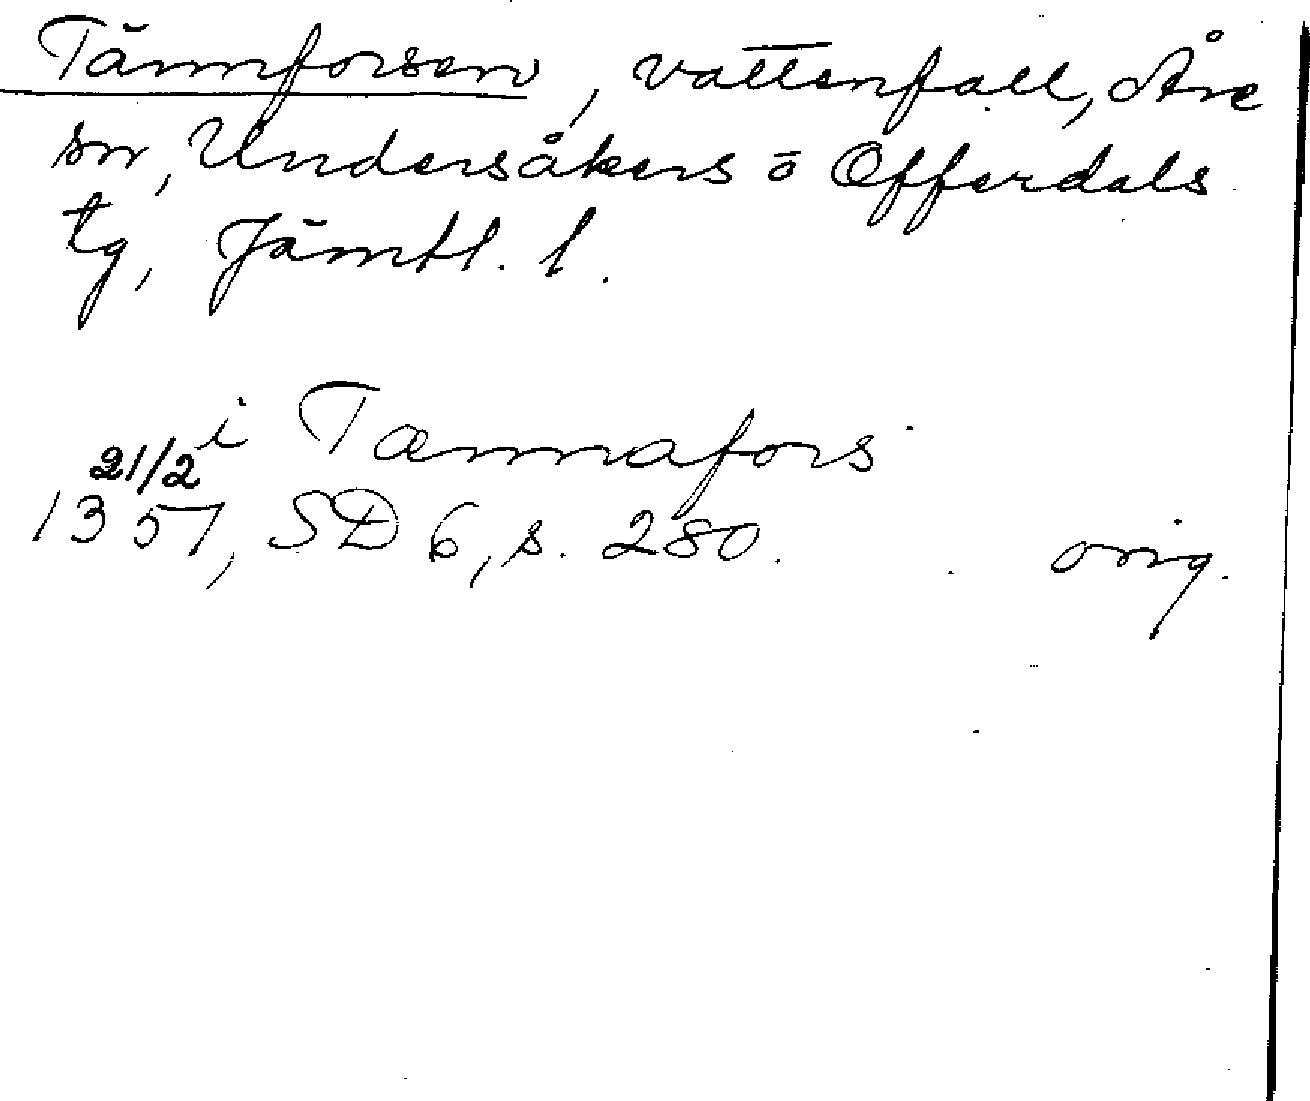 Tännforsen, vattenfall, Åre
sn, Undersåkers o Offerdals
tg, Jämtl. l.
i Tænnafors
21/2
1357, SD 6, s. 280. orig.